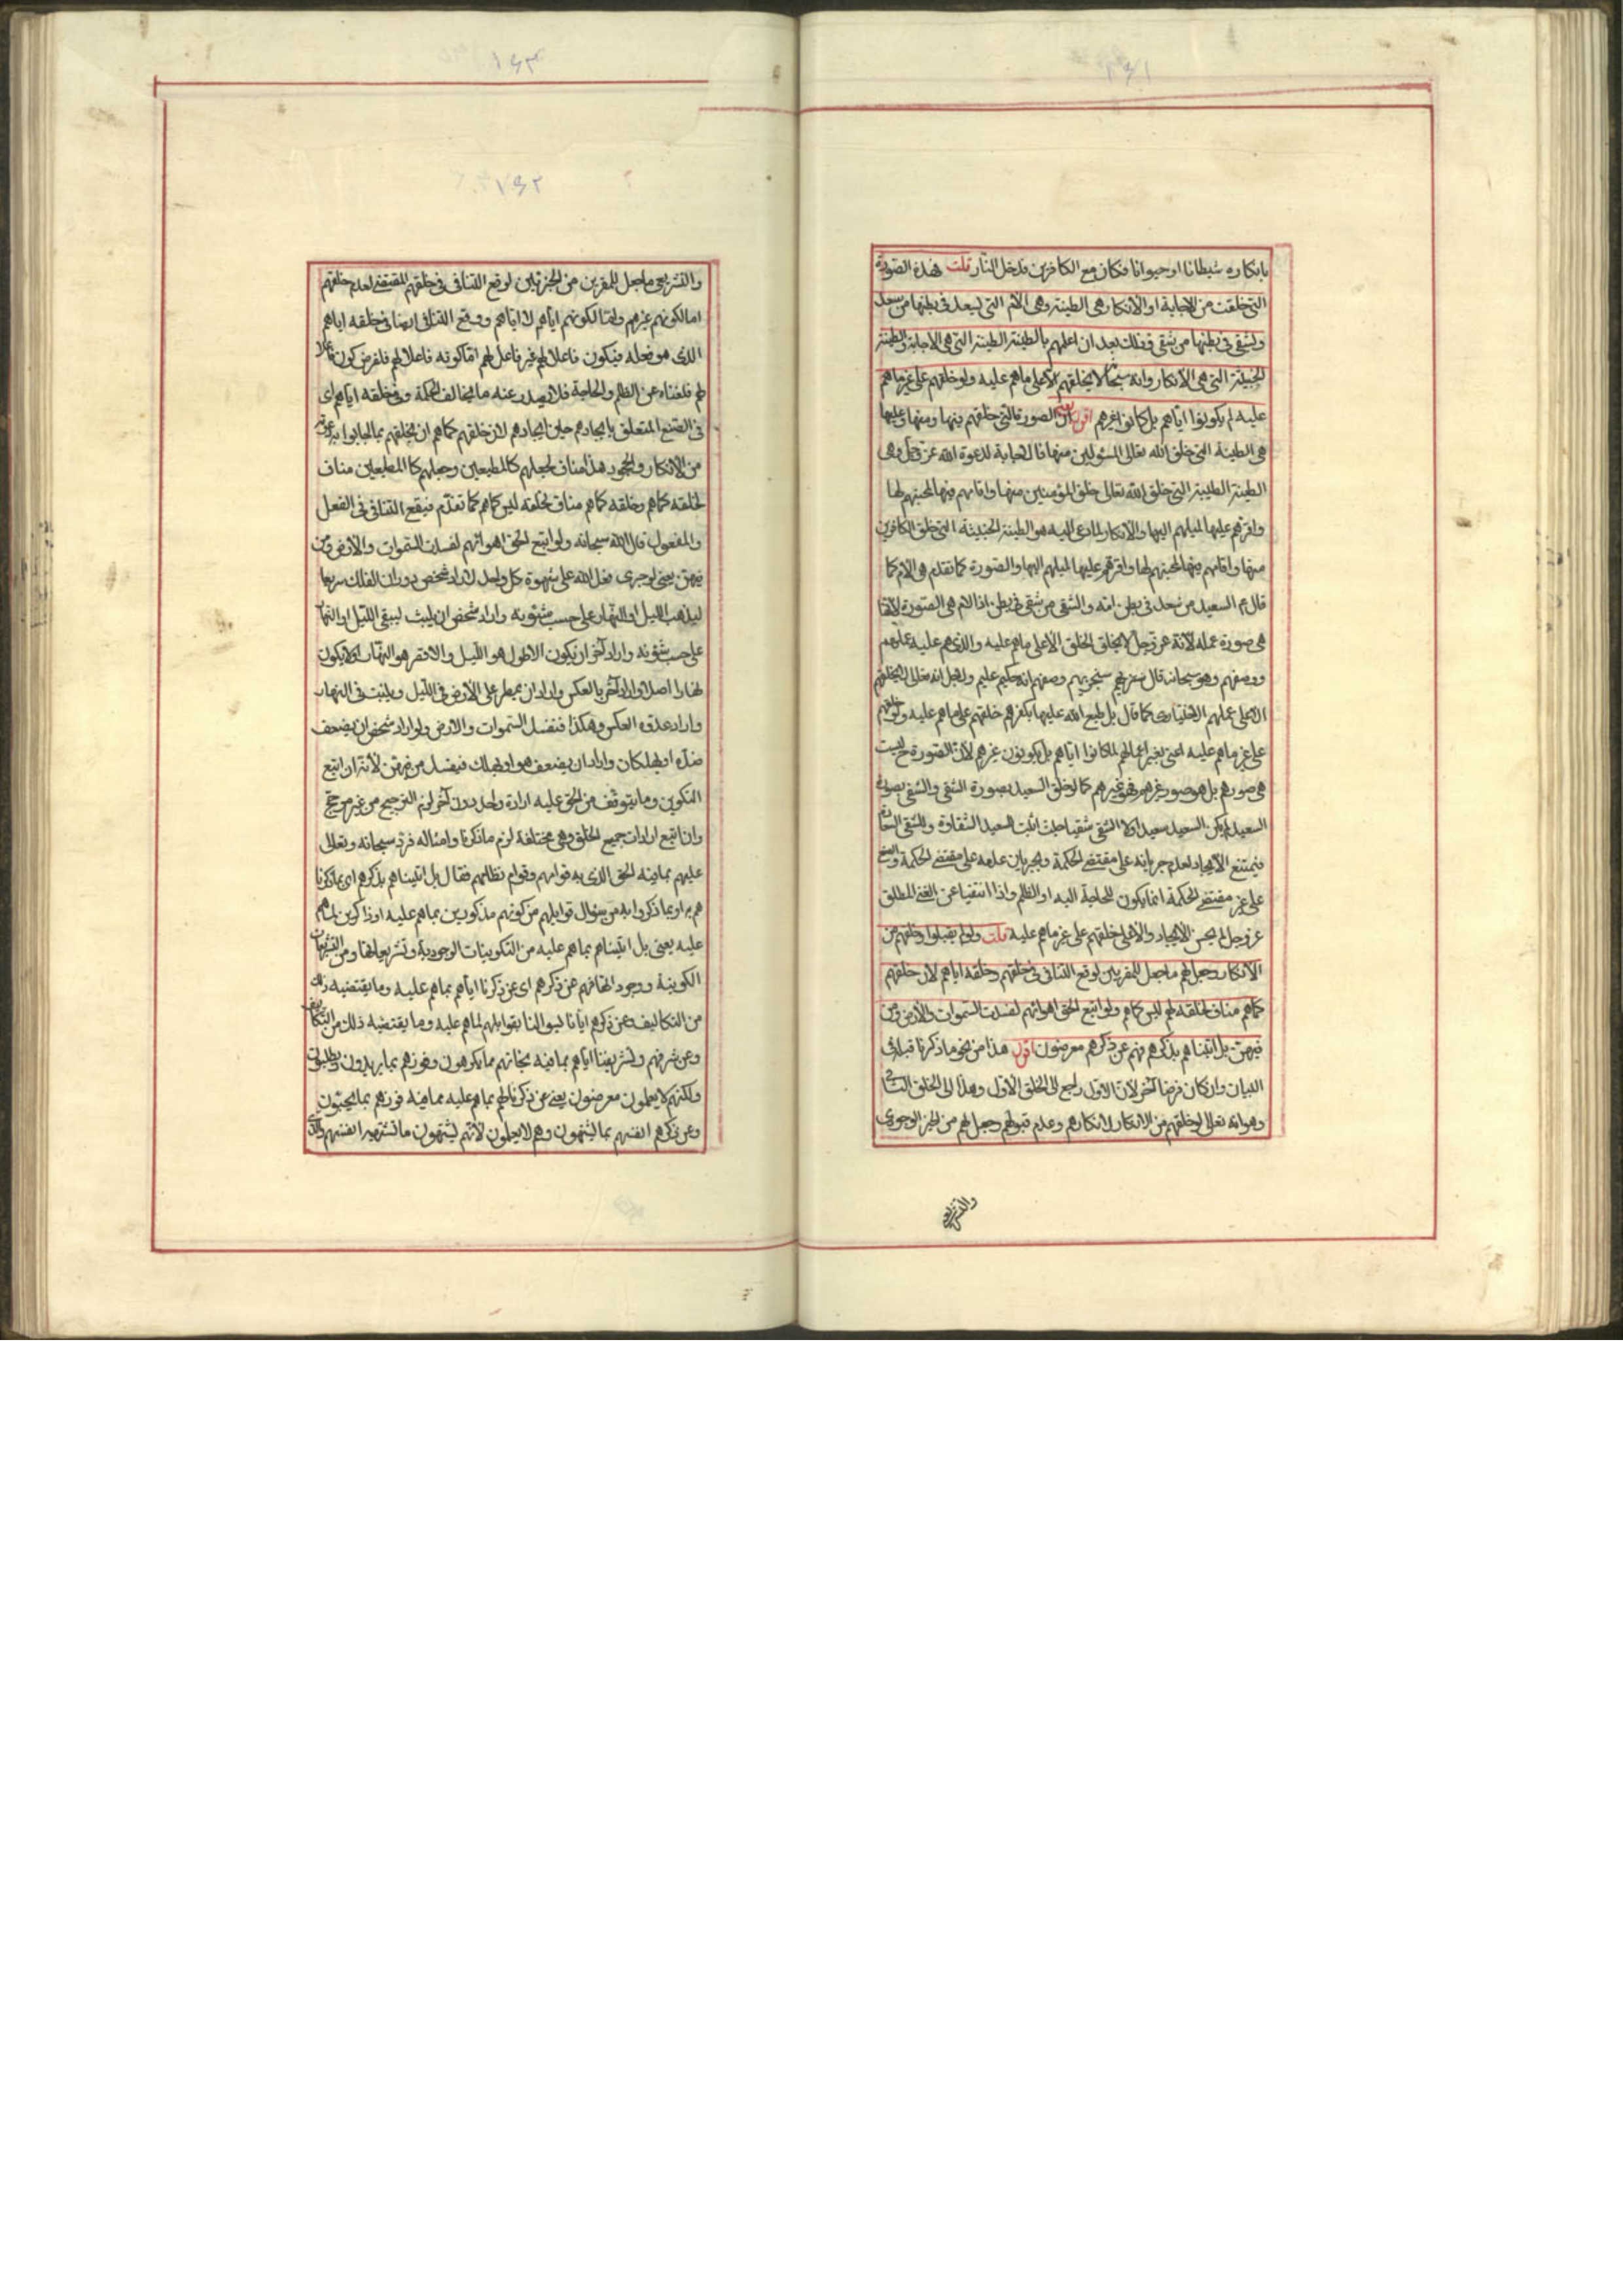 بانكاره شيطانا او حيوانا فكان مع الكافرين فدخل النار قلت فهذه الصورة
التي خلقت من الاجابة او الانكار هي الطينة وهي الام التي يسعد في بطنها من سعد
ويشقى في بطنها من شقي فذلك بعد ان اعلمهم بالطينة الطينة التي هي الاجابة والطينة
الخبيثة التي هي الانكار وانه سبحانه لا يخلقهم الا على ما هم عليه ولو خلقهم على غير ما هم
عليه لم يكونوا اياهم بل كانوا غيرهم اقول الصورة التي خلقهم فيها ومنها وعليها
هي الطينة التي خلق الله تعالى المسئولين منها فالاجابة لدعوة الله عز وجل وهي
الطينة الطيبة التي خلق الله تعالى خلق المؤمنين منها واقامهم فيها لمحبتهم لها
واقرهم عليها لميلهم اليها والانكار لما دعى اليه هو الطينة الخبيثة التي خلق الكافرين
منها واقامهم فيها لمحبتهم لها واقرهم عليها لميلهم اليها والصورة كما تقدم هي الام كما
قال ع السعيد من سعد في بطن امه والشقي من شقي في بطن اذ الام هي الصورة لانها
هي صورة عمله لانه عز وجل لا يخلق الخلق الا على ما هم عليه والذي هم عليه عملهم
ووصفهم وهو سبحانه قال سيجزيهم وصفهم انه حكيم عليم ولاجل انه تعالى لا يخلقهم
الا على عملهم الاختياري كما قال بل طبع الله عليها بكفرهم خلقهم على ما هم عليه ولو خلقهم
على غير ما هم عليه اعني بغير اعمالهم لما كانوا اياهم بل يكونون غيرهم لان الصورة ح ليست
هي صورهم بل هو صور غيرهم فهو غيرهم كما لو خلق السعيد بصورة الشقي والشقي بصورة
السعيد لم يكن السعيد سعيدا ولا الشقي شقيا حيث اثبت للسعيد الشقاوة وللشقي السعادة
فيمتنع الايجاد لعدم جريانه على مقتضى الحكمة وبجريان علمه على مقتضى الحكمة والصنع
على غير مقتضى الحكمة انما يكون للحاجة اليه او الظلم واذا انتفيا عن الغني المطلق
عز وجل لم يحسن الايجاد والا خلقهم على غير ما هم عليه قلت ولو لم يقبلوا وخلقهم من
الانكار وجعل لهم ما جعل للمقربين لوقع التنافي في خلقهم وخلقه اياهم لان خلقهم
كما هم مناف لخلقه لهم ليس كما هم ولو اتبع الحق اهوائهم لفسدت السموات والارض ومن
فيهن بل اتيناهم بذكرهم فهم عن ذكرهم معرضون اقول هذا من نحو ما ذكرنا قبل في
البيان وان كان فرضا آخر لان الاول راجع الى الخلق الاول وهذا الى الخلق الثاني
وهو انه تعالى لو خلقهم من الانكار لانكارهم وعدم قبولهم وجعل لهم من الخير الوجودي
والتشريعي
والتشريعي ما جعل للمقربين من الخيرتين لوقع التنافي في خلقهم المقتضى لعدم خلقهم
اما لكونهم غيرهم واما لكونهم اياهم لا اياهم ووقع التنافي ايضا في خلقه اياهم
الذي هو فعله فيكون فاعلا لهم غير فاعل لهم اما كونه فاعلا لهم فلفرض كونه فاعلا
لهم فلغناه عن الظلم والحاجة فلا يصدر عنه ما يخالف الحكمة وفي خلقه اياهم اي
في الصنع المتعلق بايجادهم حين ايجادهم لان خلقهم كما هم ان يخلقهم بما اجابوا به دعوته
من الانكار والجحود هذا مناف لجعلهم كالمطيعين وجعلهم كالمطيعين مناف
لخلقه كما هم وخلقه كما هم مناف لحكمته ليس كما هم كما تقدم فيقع التنافي في الفعل
والمفعول قال الله سبحانه ولو اتبع الحق اهوائهم لفسدت السموات والارض ومن
فيهن يعني لو جرى فعل الله على شهوة كل واحد لاراد شخص دوران الفلك سريعا
ليذهب الليل او النهار على حسب شئونه واراد شخص ان يلبث ليبقى الليل او النهار
على حسب شئونه واراد آخر ان يكون الاطول هو الليل والاقصر هو النهار او لا يكون
نهارا اصلا واراد آخر بالعكس واراد ان يمطر على الارض في الليل وينبت في النهار
واراد عدوه العكس وهكذا فتفسد السموات والارض ولو اراد شخص ان يضعف
ضده او يهلكان واراد ان يضعف هو او يهلك فيفسد من فيهن لانه ان اتبع
التكوين وما يتوقف من الحق عليه ارادة واحد دون آخر لزم الترجيح من غير مرجح
وان اتبع ارادات جميع الخلق وهي مختلفة لزم ما ذكرنا وامثاله فرد سبحانه وتعالى
عليهم بما فيه الحق الذي به قوامهم وقوام نظامهم فقال بل اتيناهم بذكرهم اي بما ذكرنا
هم به او بما ذكروا به من سؤال قوابلهم من كونهم مذكورين بما هم عليه او ذاكرين لما هم
عليه يعني بل اتيناهم بما هم عليه من التكوينات الوجودية وتشريعاتها ومن التشريعات
الكونية ووجوداتها فهم عن ذكرهم اي عن ذكرنا اياهم بما هم عليه وما يقتضيه ذلك
من التكاليف وعن ذكرهم ايانا ليوالنا بقوابلهم لما هم عليه وما يقتضيه ذلك من التكاليف
وعن شرفهم وتشريفنا اياهم بما فيه نجاتهم مما يكرهون وفوزهم بما يريدون ويطلبون
ولكنهم لا يعلمون معرضون يعني عن ذكرنا لهم بما هم عليه مما فيه فوزهم بما يحبون
وعن ذكرهم انفسهم بما يشتهون وهم لا يعلمون لانهم يشتهون ما تشتهيه انفسهم والذي